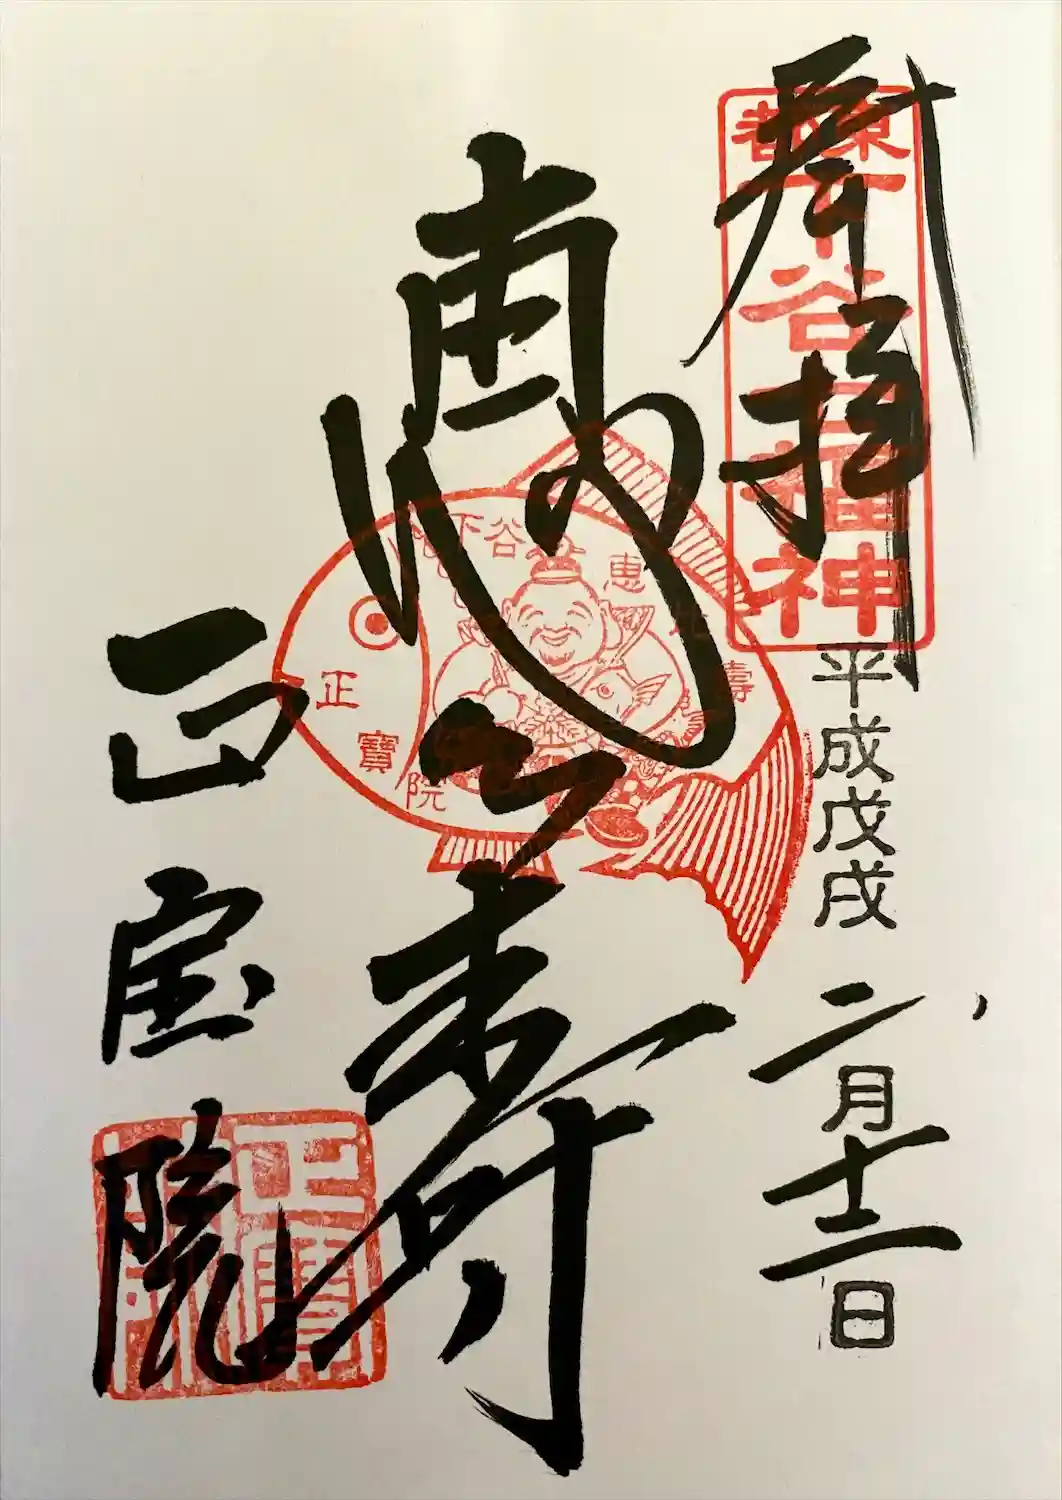 奉拝
東都
下谷七福神
平成戊戌
二月十二日
恵比寿
下谷
恵比壽
正寶院
正宝院
正寶院